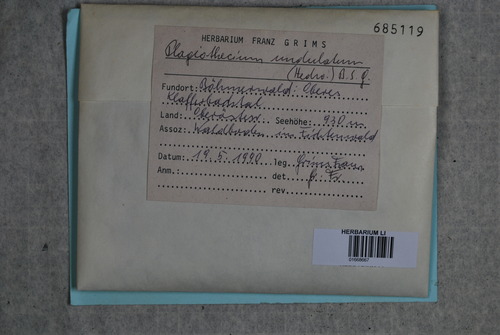 685119
HERBARIUM FRANZ GRIMS
Plagiothecium undulatum
(Hedw.) B.S.G.
Fundort: Böhmerwald: Oberes
Land: Oberösterr. Seehöhe: 930 m
Assoz: Waldboden im Fichtenwald
Datum: 19.5.1980 leg. Grims Franz
Anm.: det. G. Fr.
rev.
HERBARIUM LI